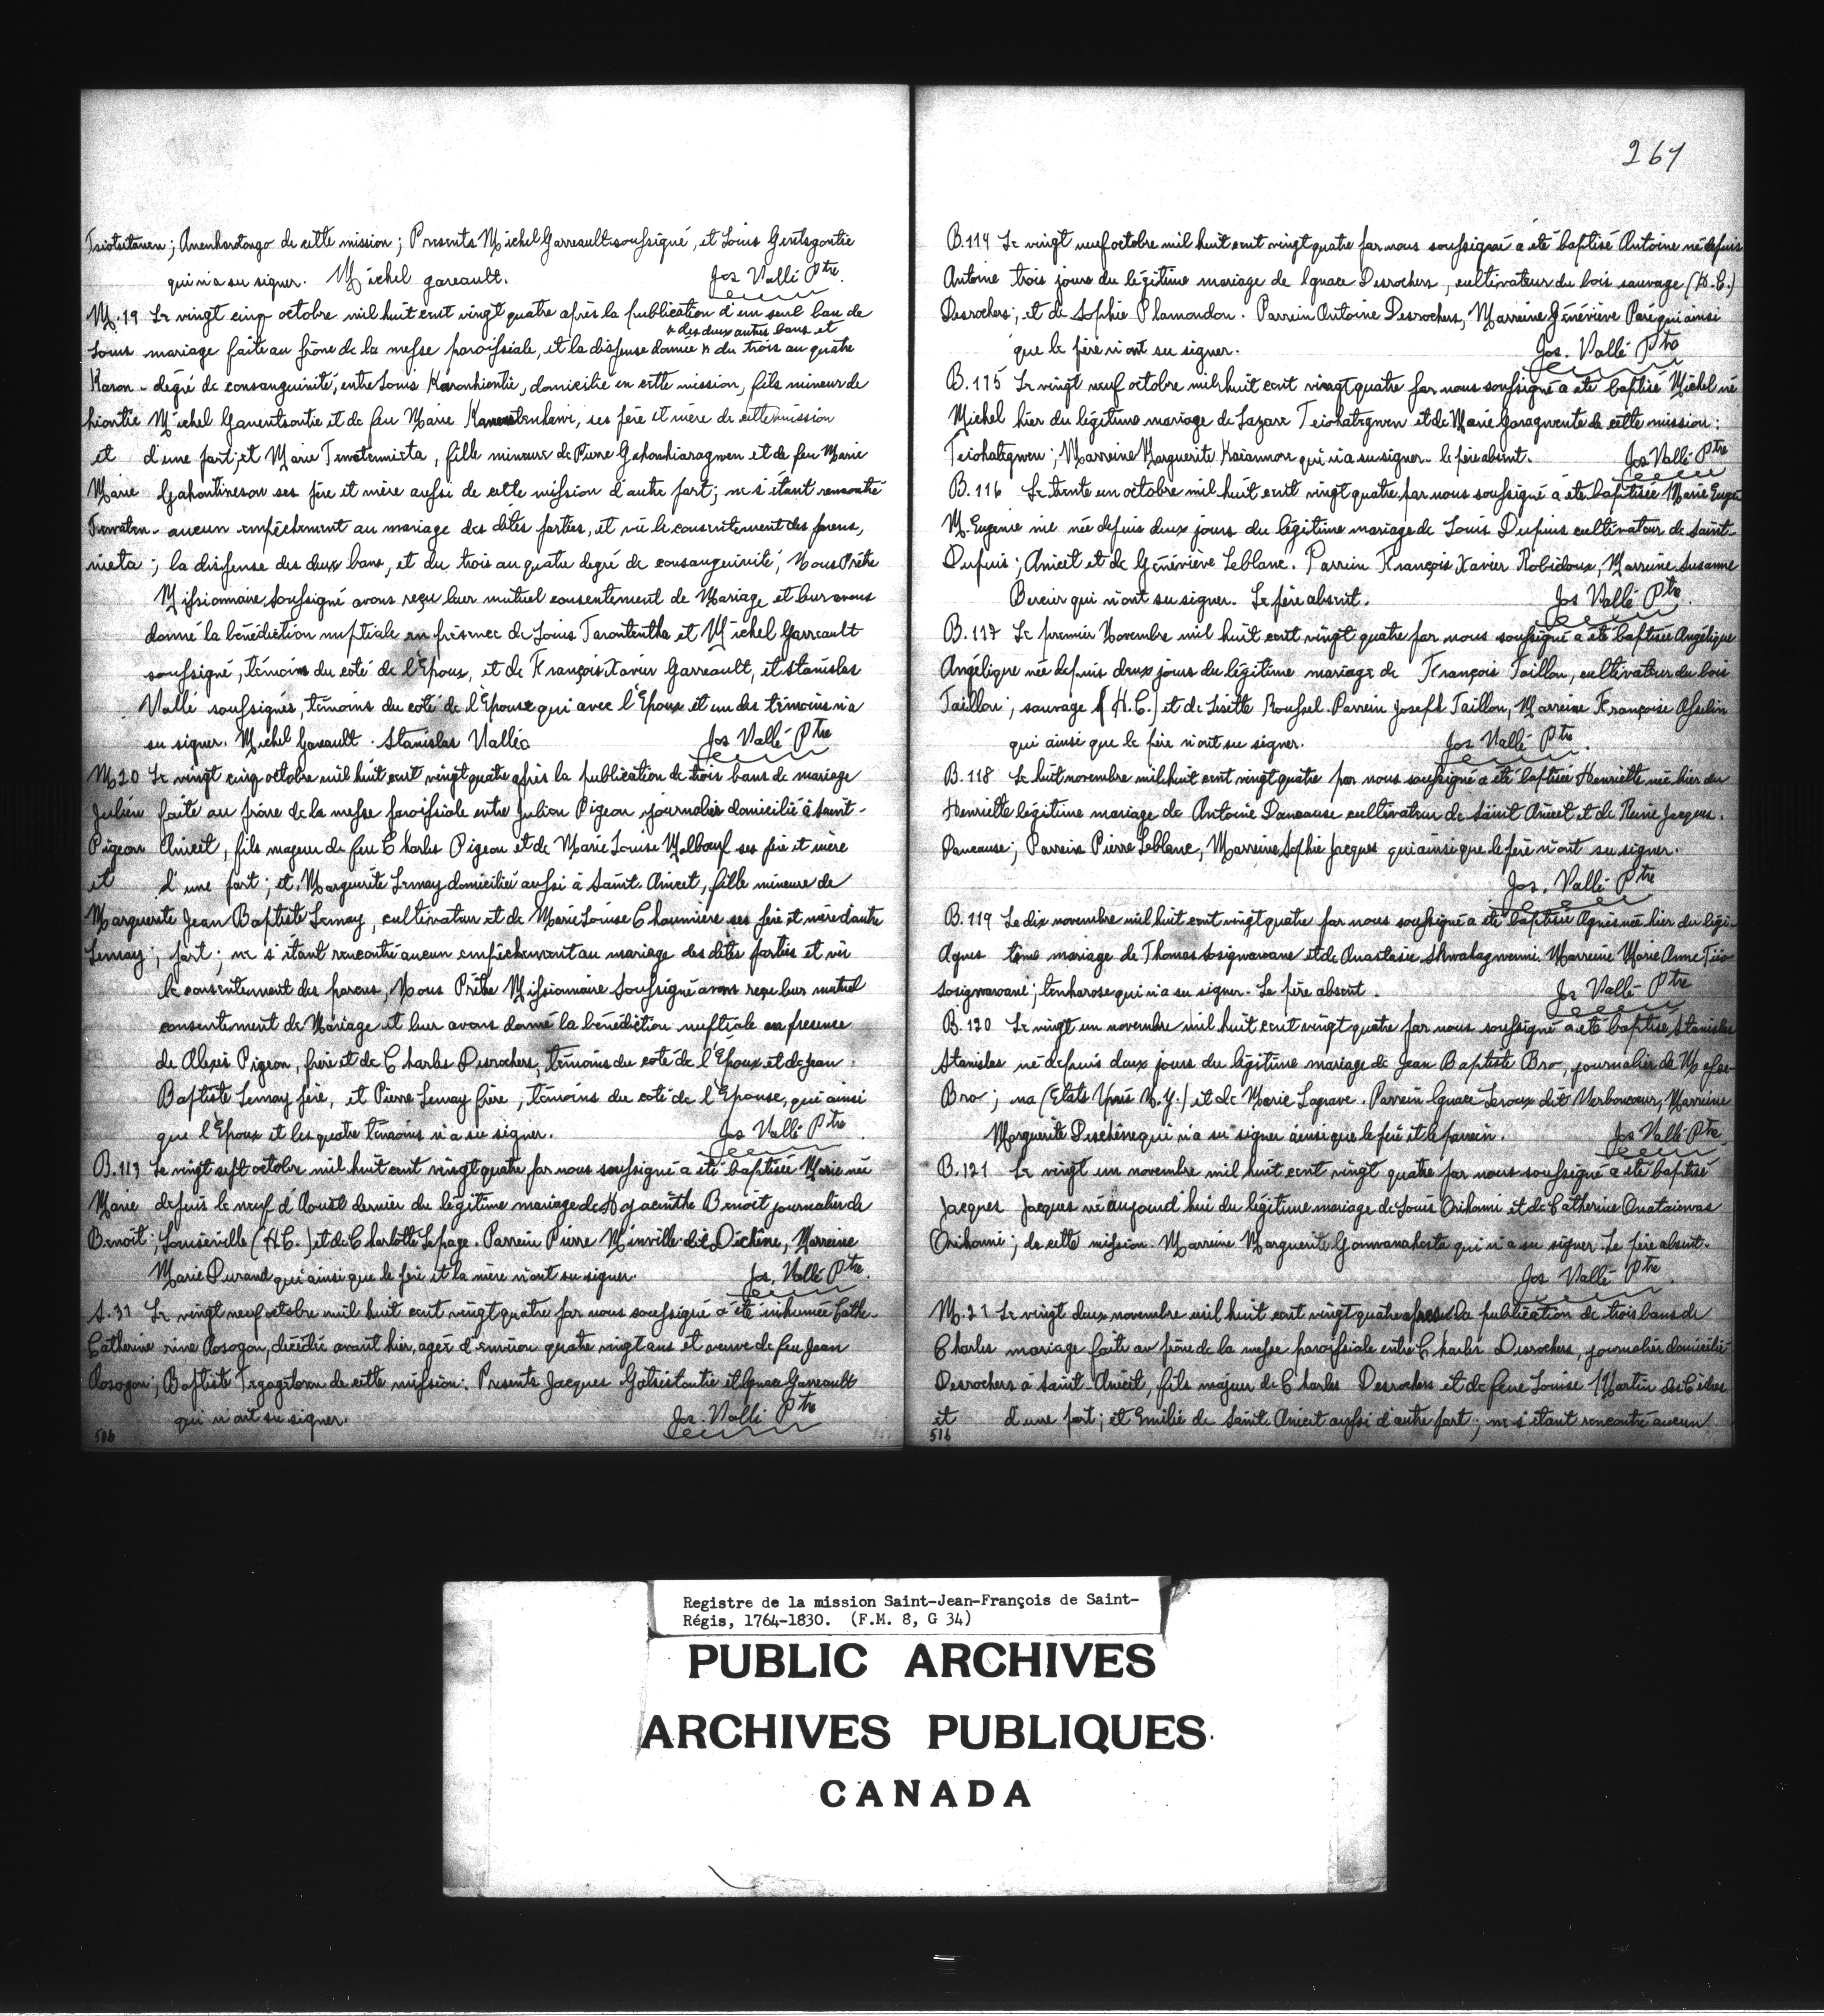 Tsiotsitanen; Anenharotongo de cette mission; Presents Michel Garreault soussigné, et Louis Gentsgontie
qui n'a su signer. Michel gareault. Jos Vallé Ptre.
M.19 Le vingt cinq octobre mil huit cent vingt quatre après la publication d'un seul ban de
& des deux autres bans et
Louis mariage faite au prône de la messe paroissiale, et la dispense donnée & du trois au quatre
Karon- degré de consanguinité, entre Louis Karonhiontie, domicilié en cette mission, fils mineur de
hiontie Michel Ganentsontie et de feu Marie, ses père et mère de cette mission
et d'une part; et Marie Tewatennieta, fille mineure de Pierre Gahonhiaragwen et de feu Marie
Marie Gahontineson ses père et mère aussi de cette mission d'autre part; ne s'étant rencontré
Tewaten- aucun empêchement au mariage des dites parties, et vu le consentement des parens,
nieta; la dispense des deux bans, et du trois au quatre degré de consanguinité, Nous Prêtre
Missionnaire soussigné avons reçu leur mutuel consentement de Mariage et leur avons
donné la bénédiction nuptiale en présence de Louis Tarontentha et Michel Garreault
soussigné, témoins du coté de l'Epoux, et de François Xavier Garreault, et Stanislas
Vallé soussignés, témoins du coté de l'Epouse qui avec l'Epoux et un des témoins n'a
su signer. Michel Gareault. Stanislas Vallée Jos Vallé Ptre
M20 Le vingt cinq octobre mil huit cent vingt quatre après la publication de trois bans de mariage
Julien faite au prône de la messe paroissiale entre Julien Pigeon journalier domicilié à Saint-
Pigeon Anicet, fils majeur de feu Charles Pigeon et de Marie Louise Malbœuf ses père et mère
et d'une part; et Marguerite Lemay domiciliée aussi à Saint-Anicet, fille mineure de
Marguerite Jean Baptiste Lemay, cultivateur et de Marie Louise Chaumière ses père et mère d'autre
Lemay; part; ne s'étant rencontré aucun empêchement au mariage des dites parties et vu
le consentement des parens, Nous Prêtre Missionnaire Soussigné avons reçu leur mutuel
consentement de Mariage et leur avons donné la bénédiction nuptiale en présence
de Alexis Pigeon, frère et de Charles Desrochers, témoins du coté de l'Epoux et de Jean
Baptiste Lemay père, et Pierre Lemay frère, témoins du coté de l'Epouse, qui ainsi
que l'Epoux et les quatre témoins n'a su signer. Jos Vallé Ptre
B.113 Le vingt sept octobre mil huit cent vingt quatre par nous soussigné a été baptisée Marie née
Marie depuis le neuf d'Aoust dernier du légitime mariage de Hyacinthe Benoit journalier de
Benoit; Louiseville (H.C.) et de Charlotte Lepage. Parrein Pierre Minville dit Dechêne, Marreine
Marie Durand qui ainsi que le père et la mère n'ont su signer. Jos. Vallé Ptre.
S.31 Le vingt neuf octobre mil huit cent vingt quatre par nous soussigné a été inhumée Cathe-
Catherine rine Rosogon, décédée avant hier, agée d'environ quatre vingt ans et veuve de feu Jean
Rosogon; Baptiste de cette mission. Presents Jacques Gatsistontie et Ignace Garreault
qui n'ont su signer. Jos. Vallé Ptre
516
267
B.114 Le vingt neuf octobre mil huit cent vingt quatre par nous soussigné a été baptisé Antoine né depuis
Antoine trois jours du légitime mariage de Ignace Desrochers, cultivateur du bois sauvage (H.C.)
Desrochers; et de Sophie Plamondon. Parrein Antoine Desrochers, Marreine Géneviève Paré qui ainsi
que le père n'ont su signer. Jos. Vallé Ptre
B.115 Le vingt neuf octobre mil huit cent vingt quatre par nous soussigné a été baptisé Michel né
Michel hier du légitime mariage de Lazare Teiohategwen et de Marie Garagwente de cette mission.
Teiohategwen; Marreine Marguerite Kaiannor qui n'a su signer. le père absent. Jos Vallé Ptre
B.116 Le trente un octobre mil huit cent vingt quatre par nous soussigné a été baptisée Marie Eugé-
M. Eugenie nie née depuis deux jours du légitime mariage de Louis Dupuis cultivateur de Saint-
Dupuis; Anicet et de Géneviève Leblanc. Parrein François Xavier Robidoux, Marreine Susanne
Bercier qui n'ont su signer. Le père absent. Jos Vallé Ptre.
B.117 Le premier Novembre mil huit cent vingt quatre par nous soussigné a été baptisée Angélique
Angélique née depuis deux jours du légitime mariage de François Taillon, cultivateur du bois
Taillon; sauvage (H.C.) et de Lisette Roussel. Parrein Joseph Taillon, Marreine Françoise Asselin
qui ainsi que le père n'ont su signer. Jos Vallé Ptre.
B.118 Le huit novembre mil huit cent vingt quatre par nous soussigné a été baptisée Henriette née hier du
Henriette légitime mariage de Antoine Dancause cultivateur de Saint Anicet et de Reine Jacques.
Dancause; Parrein Pierre Leblanc, Marreine Sophie Jacques qui ainsi que le père n'ont su signer.
Jos. Vallé Ptre
B.119 Le dix novembre mil huit cent vingt quatre par nous soussigné a été baptisée Agnès née hier du légi-
Agnes time mariage de Thomas Sosigwarowane et de Anastasie Skwahagwenni. Marreine Marie Anne Teio-
Sosigwarowané; tenharose qui n'a su signer. Le père absent. Jos Vallé Ptre
B.120 Le vingt un novembre mil huit cent vingt quatre par nous soussigné a été baptisé Stanislas
Stanislas né depuis deux jours du légitime mariage de Jean Baptiste Bro, journalier de Masse-
Bro; na (Etats Unis N.Y.) et de Marie Lagrave. Parrein Ignace Leroux dit Verboncœur, Marreine
Marguerite Deschêne qui n'a su signer ainsi que le père et le parrein. Jos Vallé Ptre.
B.121 Le vingt un novembre mil huit cent vingt quatre par nous soussigné a été baptisé
Jacques Jacques né aujourd'hui du légitime mariage de Louis Orihonni et de Catherine Onataienwas
Orihonni; de cette mission. Marreine Marguerite Gonwanahosta qui n'a su signer. Le père absent.
Jos Vallé Ptre.
M.21 Le vingt deux novembre mil huit cent vingt quatre après la publication de trois bans de
Charles mariage faite au prône de la messe paroissiale entre Charles Desrochers, journalier domicilié
Desrochers à Saint-Anicet, fils majeur de Charles Desrochers et de feue Louise Martin des Cèdres
et d'une part; et Emilie de Saint Anicet aussi d'autre part; ne s'étant rencontré aucun
516
Registre de la mission Saint-Jean-François de Saint-
Régis, 1764-1830. (F.M. 8, G 34)
PUBLIC ARCHIVES
ARCHIVES PUBLIQUES
CANADA